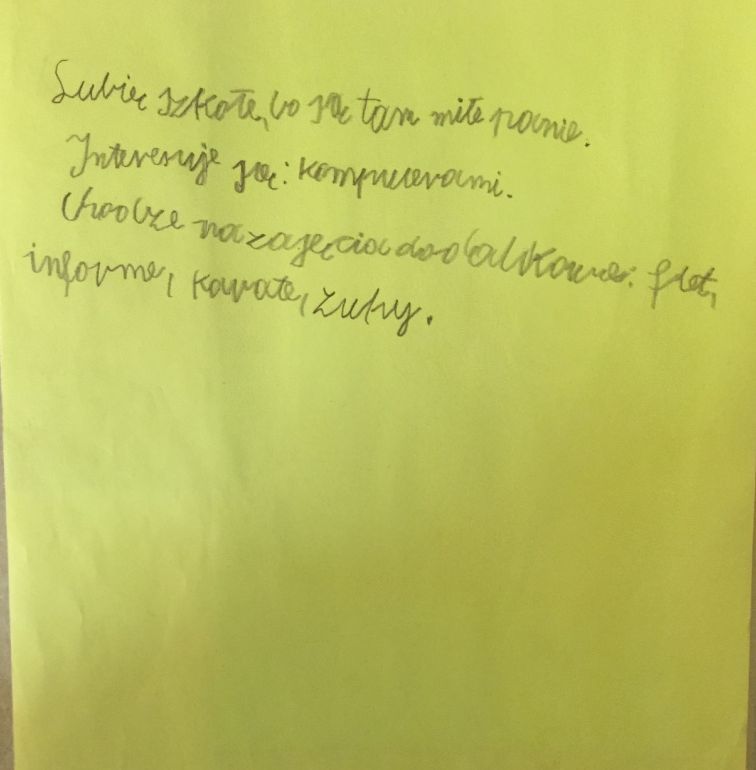 Lubię szkołę, bo są tam miłe panie.
Interesuje się: kompuerami.
Chodze na zajęcia dodatkowe: flet,
informe, karate, zuhy.